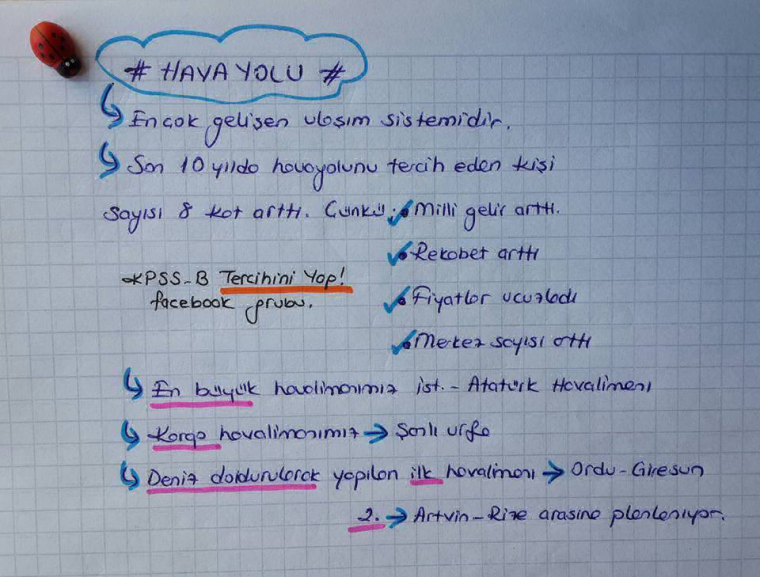 # HAVA YOLU #
En çok gelişen ulaşım sistemidir.
Son 10 yılda havayolunu tercih eden kişi
sayısı 8 kat arttı. Çünkü; Milli gelir arttı.
Rekabet arttı
KPSS-B Tercihini Yap!
facebook grubu.
Fiyatlar ucuzladı
Merkez sayısı arttı
En büyük havalimanımız ist. - Atatürk Havalimanı
Kargo havalimanımız → Şanlı urfa
Deniz doldurularak yapılan ilk havalimanı → Ordu-Giresun
2. → Artvin-Rize arasına planlanıyor.